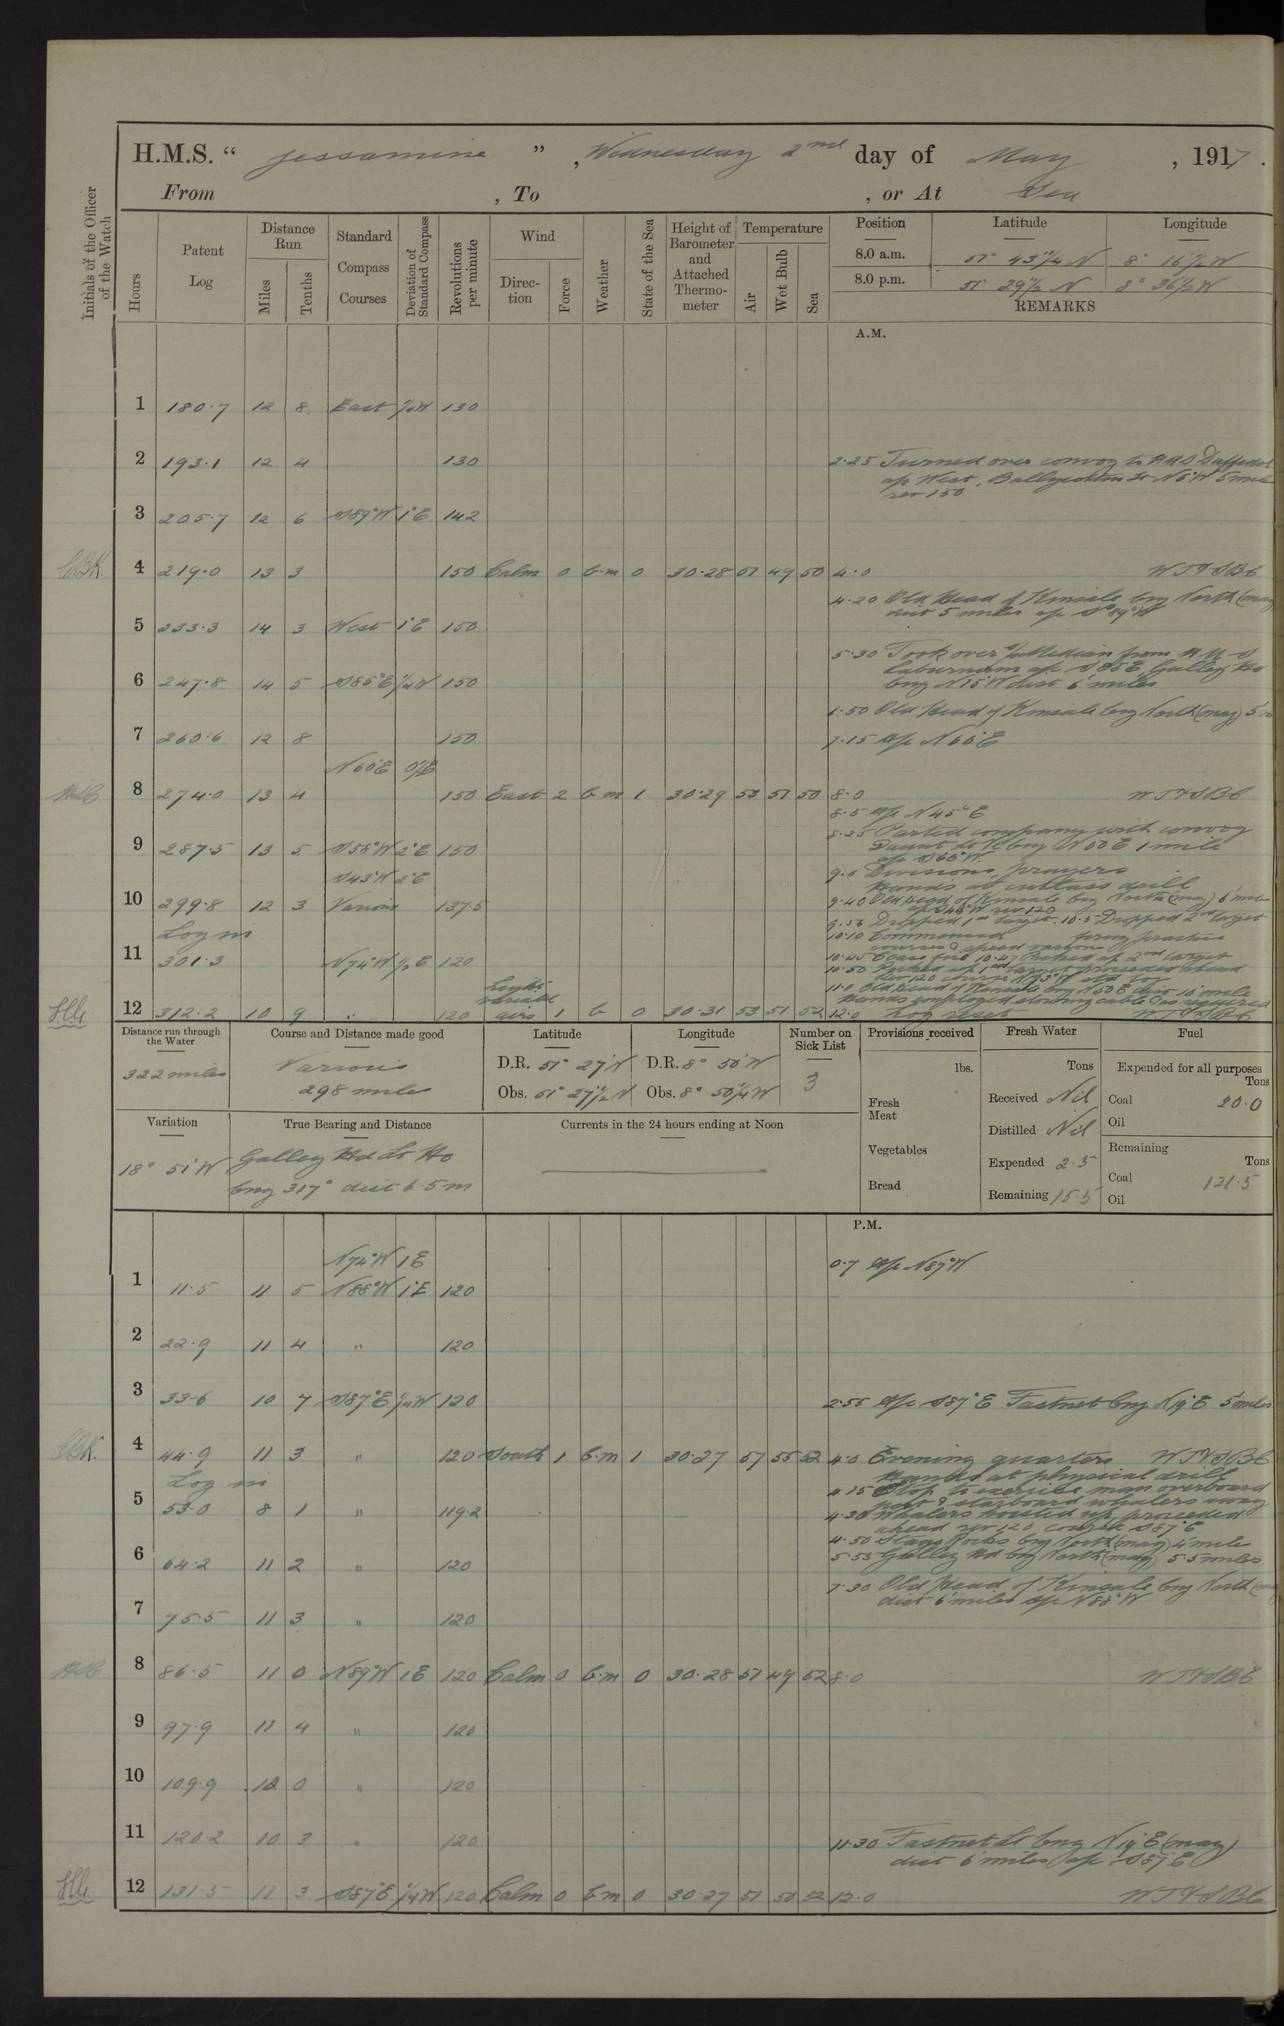 H.M.S. " Jessamine " , Wednesday 2nd day of May , 1917 .
From , To , or At Sea
Initials of the Officer of the Watch
Hours
Patent Log
Distance Run
Miles
Tenths
Standard Compass Courses
Deviation of Standard Compass
Revolutions per minute
Wind
Direction
Force
Weather
State of the Sea
Height of Barometer and Attached Thermometer
Temperature
Air
Wet Bulb
Sea
Position Latitude Longitude
8.0 a.m. 51° 43 1/4 N 8° 16 1/2 W
8.0 p.m. 51 29 1/2 N 8° 36 1/2 W
REMARKS
A.M.
1 180.7 12 8 East 1/4W 130
2 193.1 12 4 130
2.25 Turned over convoy to HMS Daffodil
a/c West, Ballycotton Lt N5°W 5 miles
rev 150
3 205.7 12 6 S89°W 1°E 142
4 219.0 13 3 150 Calm 0 b.m 0 30.28 51 49 50 4.0
4.20 Old Head of Kinsale brg North (mag)
dist 5 miles a/c S89°W
5 233.3 14 3 West 1°E 150
5.30 Took over from H M S
Laburnum a/c S85E Galley Hd
brg N15°W dist 6 miles
6 247.8 14 5 S85°E 1/4W 150
Old Head of Kinsale brg North (mag) 5 m
7 260.6 12 8 150
7.15 a/c N60°E
N60°E
8 274.0 13 4 150 East 2 b m 1 30.29 53 51 50 8.0
8.5 a/c N45°E
8.25 Parted company with convoy
Daunt Lt V brg N50E 1 mile
a/c S60°W.
9 287.5 13 5 S58°W 2°E 150
S43°W 2°E
Divisions, prayers
Hands at cutlass drill
10 299.8 12 3 Various 137.5
9.40 Old Head of Kinsale brg North (mag) 6 miles
rev 120
9.56 Dropped 1st target. 10.5 Dropped 2nd target
10.10 Commenced firing practice
courses & speed various
Log in
11 301.3 N74°W 1/2E 120
10.45 Cease fire 10.47 Picked up 2nd target
10.50 Picked up 1st target proceeded ahead
11.0 Old Head of Kinsale brg N50E dist 10 miles
Hands employed stowing cable & as required
Light variable airs
12 312.2 10 9 " 120 1 b 0 30.31 53 51 52 12.0 Log reset
Distance run through the Water
322 miles
Course and Distance made good
Various
298 miles
Latitude
D.R. 51° 27' N
Obs. 51° 27 1/2 N
Longitude
D.R. 8° 50' W
Obs. 8° 50 1/4 W
Number on Sick List
3
Provisions received
lbs.
Fresh Meat
Vegetables
Bread
Fresh Water
Tons
Received Nil
Distilled Nil
Expended 2.5
Remaining 15.5
Fuel
Expended for all purposes
Tons
Coal 20.0
Oil
Remaining
Tons
Coal 121.5
Oil
Variation
18° 51' W
True Bearing and Distance
Galley Hd Lt Ho
brg 317° dist 6.5 m
Currents in the 24 hours ending at Noon
P.M.
N74°W 1E
0.7 a/c N87°W
1 11.5 11 5 N88°W 1°E 120
2 22.9 11 4 " 120
3 33.6 10 7 S87°E 1/4W 120
2.55 a/c S87°E Fastnet brg N19°E 5 miles
4 44.9 11 3 " 120 South 1 b.m 1 30.27 57 55 52 4.0 Evening quarters
Hands at physical drill
Log in
4.15 Stop to exercise man overboard
port & starboard whalers away
5 53.0 8 1 " 119.2
4.30 Whalers hoisted up, proceeded
ahead rev 120 course S87°E
4.50 Stags Rocks brg North (mag) 4 mile
5.55 Galley Hd brg North (mag) 5.5 miles
6 64.2 11 2 " 120
7.30 Old Head of Kinsale brg North
dist 6 miles a/c N88°W
7 75.5 11 3 " 120
8 86.5 11 0 N89°W 1E 120 Calm 0 b.m 0 30.28 51 49 52 8.0
9 97.9 11 4 " 120
10 109.9 12 0 " 120
11 120.2 10 3 " 120
11.30 Fastnet Lt brg N19°E (mag)
dist 6 miles a/c S87°E
12 131.5 11 3 S87°E 1/4W 120 Calm 0 b.m 0 30.27 51 50 52 12.0